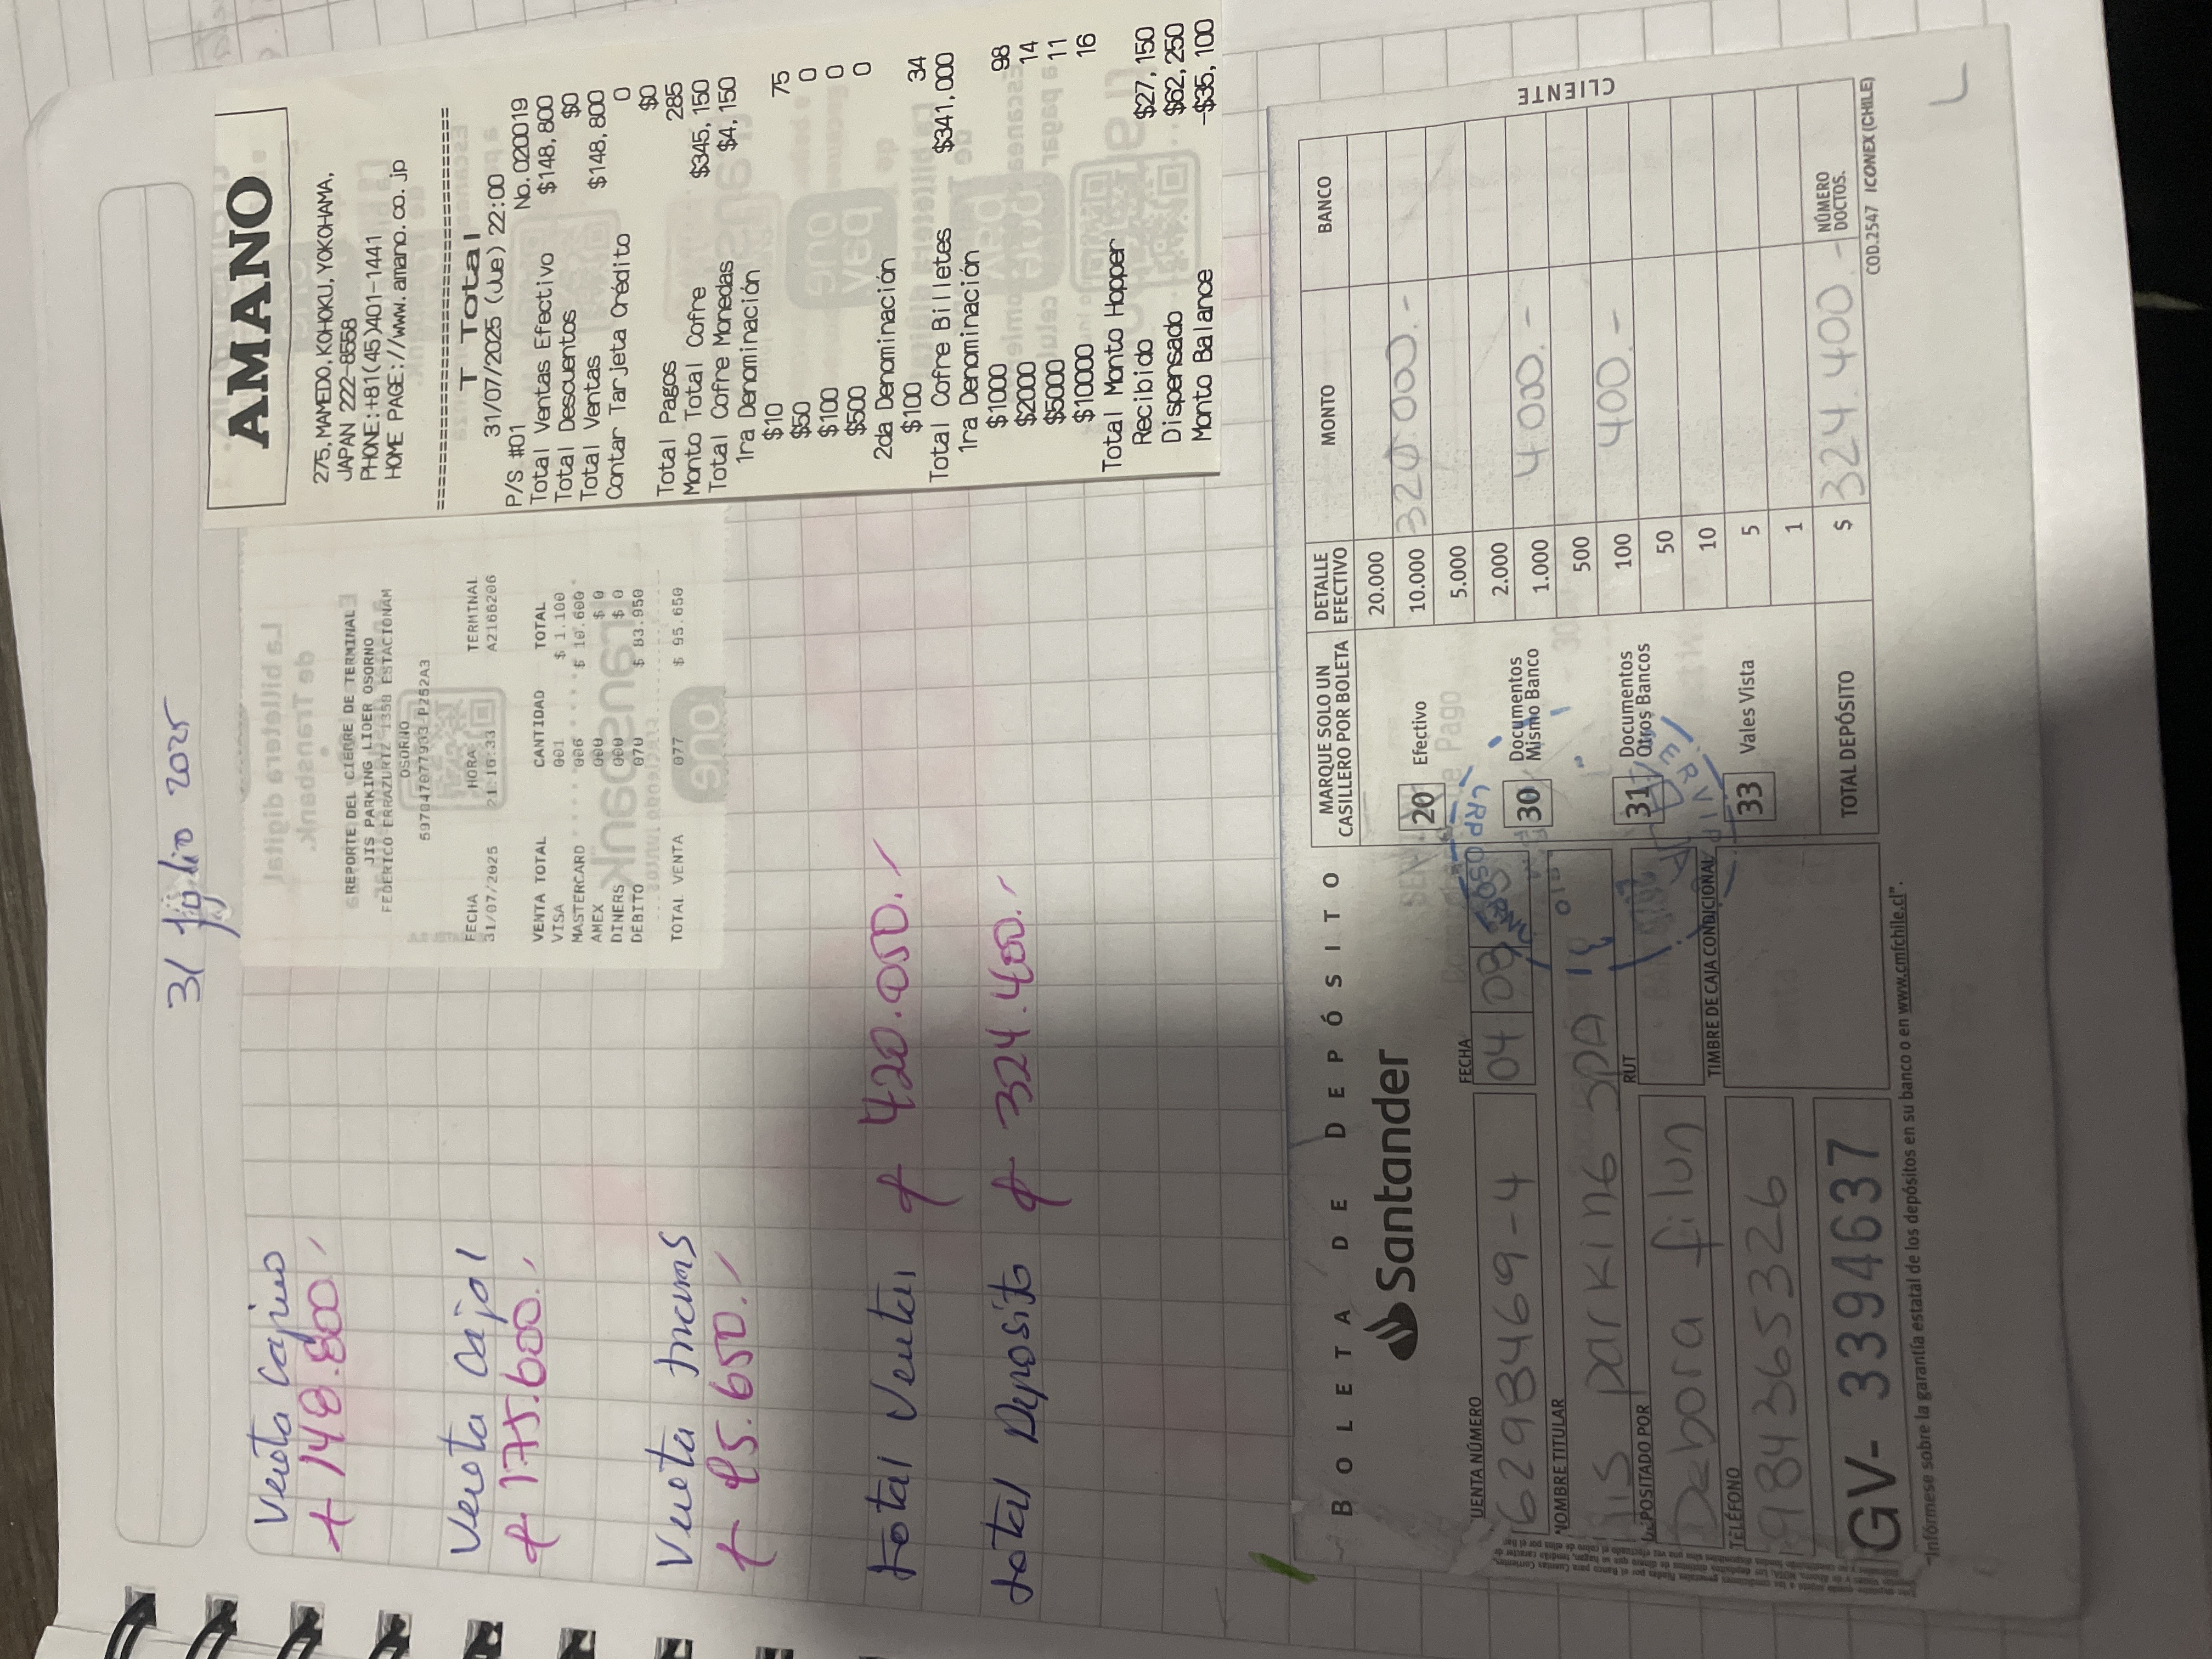 31 Julio 2025
Venta Cajero
$ 148.800.-
Venta Caja 1
$ 175.600.-
Venta Tnrans
$ 95.650.-
Total Ventas $ 420.050.-
Total Deposito $ 324.400.-
REPORTE DEL CIERRE DE TERMINAL
JIS PARKING LIDER OSORNO
FEDERICO ERRAZURIZ 1358 ESTACIONAM
OSORNO
FECHA HORA TERMINAL
31/07/2025 21:16:33 A2166206
VENTA TOTAL CANTIDAD TOTAL
VISA 001 $ 1.100
MASTERCARD 006 $ 10.600
AMEX 000 $ 0
DINERS 000 $ 0
DEBITO 070 $ 83.950
TOTAL VENTA 077 $ 95.650
AMANO
275, MAMEDO, KOHOKU, YOKOHAMA,
JAPAN 222-8558
PHONE:+81(45)401-1441
HOME PAGE://www.amano.co.jp
================================
T Total
31/07/2025 (Jue) 22:00
P/S #01 No.020019
Total Ventas Efectivo $148,800
Total Descuentos $0
Total Ventas $148,800
Contar Tarjeta Crédito 0
$0
Total Pagos 285
Monto Total Cofre $345,150
Total Cofre Monedas $4,150
1ra Denominación
$10 75
$50 0
$100 0
$500 0
2da Denominación
$100 34
Total Cofre Billetes $341,000
1ra Denominación
$1000 98
$2000 14
$5000 11
$10000 16
Total Monto Hopper
Recibido $27,150
Dispensado $62,250
Monto Balance -$35,100
BOLETA DE DEPÓSITO
Santander
CUENTA NÚMERO FECHA
62983469-4 04 08
NOMBRE TITULAR
JIS parking SPA
DEPOSITADO POR RUT
Debora filun
TELÉFONO TIMBRE DE CAJA CONDICIONAL
984365326
GV- 3394637
"Infórmese sobre la garantía estatal de los depósitos en su banco o en www.cmfchile.cl".
MARQUE SOLO UN
CASILLERO POR BOLETA
20 Efectivo
30 Documentos
Mismo Banco
31 Documentos
Otros Bancos
33 Vales Vista
DETALLE
EFECTIVO MONTO BANCO
20.000
10.000 320.000.-
5.000
2.000
1.000 4.000.-
500
100 400.-
50
10
5
1
TOTAL DEPÓSITO $ 324.400.- NÚMERO
DOCTOS.
CLIENTE
COD.2547 ICONEX (CHILE)